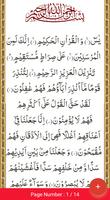 بسم الله الرحمن الرحيم
يٰسٓ ۝ وَالْقُرْاٰنِ الْحَكِيْمِ ۝ اِنَّكَ لَمِنَ
الْمُرْسَلِيْنَ ۝ عَلٰى صِرَاطٍ مُّسْتَقِيْمٍ ۝
تَنْزِيْلَ الْعَزِيْزِ الرَّحِيْمِ ۝ لِتُنْذِرَ قَوْمًا
مَّاۤ اُنْذِرَ اٰبَآؤُهُمْ فَهُمْ غٰفِلُوْنَ ۝
لَقَدْ حَقَّ الْقَوْلُ عَلٰۤى اَكْثَرِهِمْ فَهُمْ
لَا يُؤْمِنُوْنَ ۝ اِنَّا جَعَلْنَا فِيْۤ اَعْنَاقِهِمْ
اَغْلٰلًا فَهِيَ اِلَى الْاَذْقَانِ فَهُمْ
مُّقْمَحُوْنَ ۝ وَجَعَلْنَا مِنْۢ بَيْنِ
اَيْدِيْهِمْ سَدًّا وَّمِنْ خَلْفِهِمْ سَدًّا
Page Number: 1 / 14